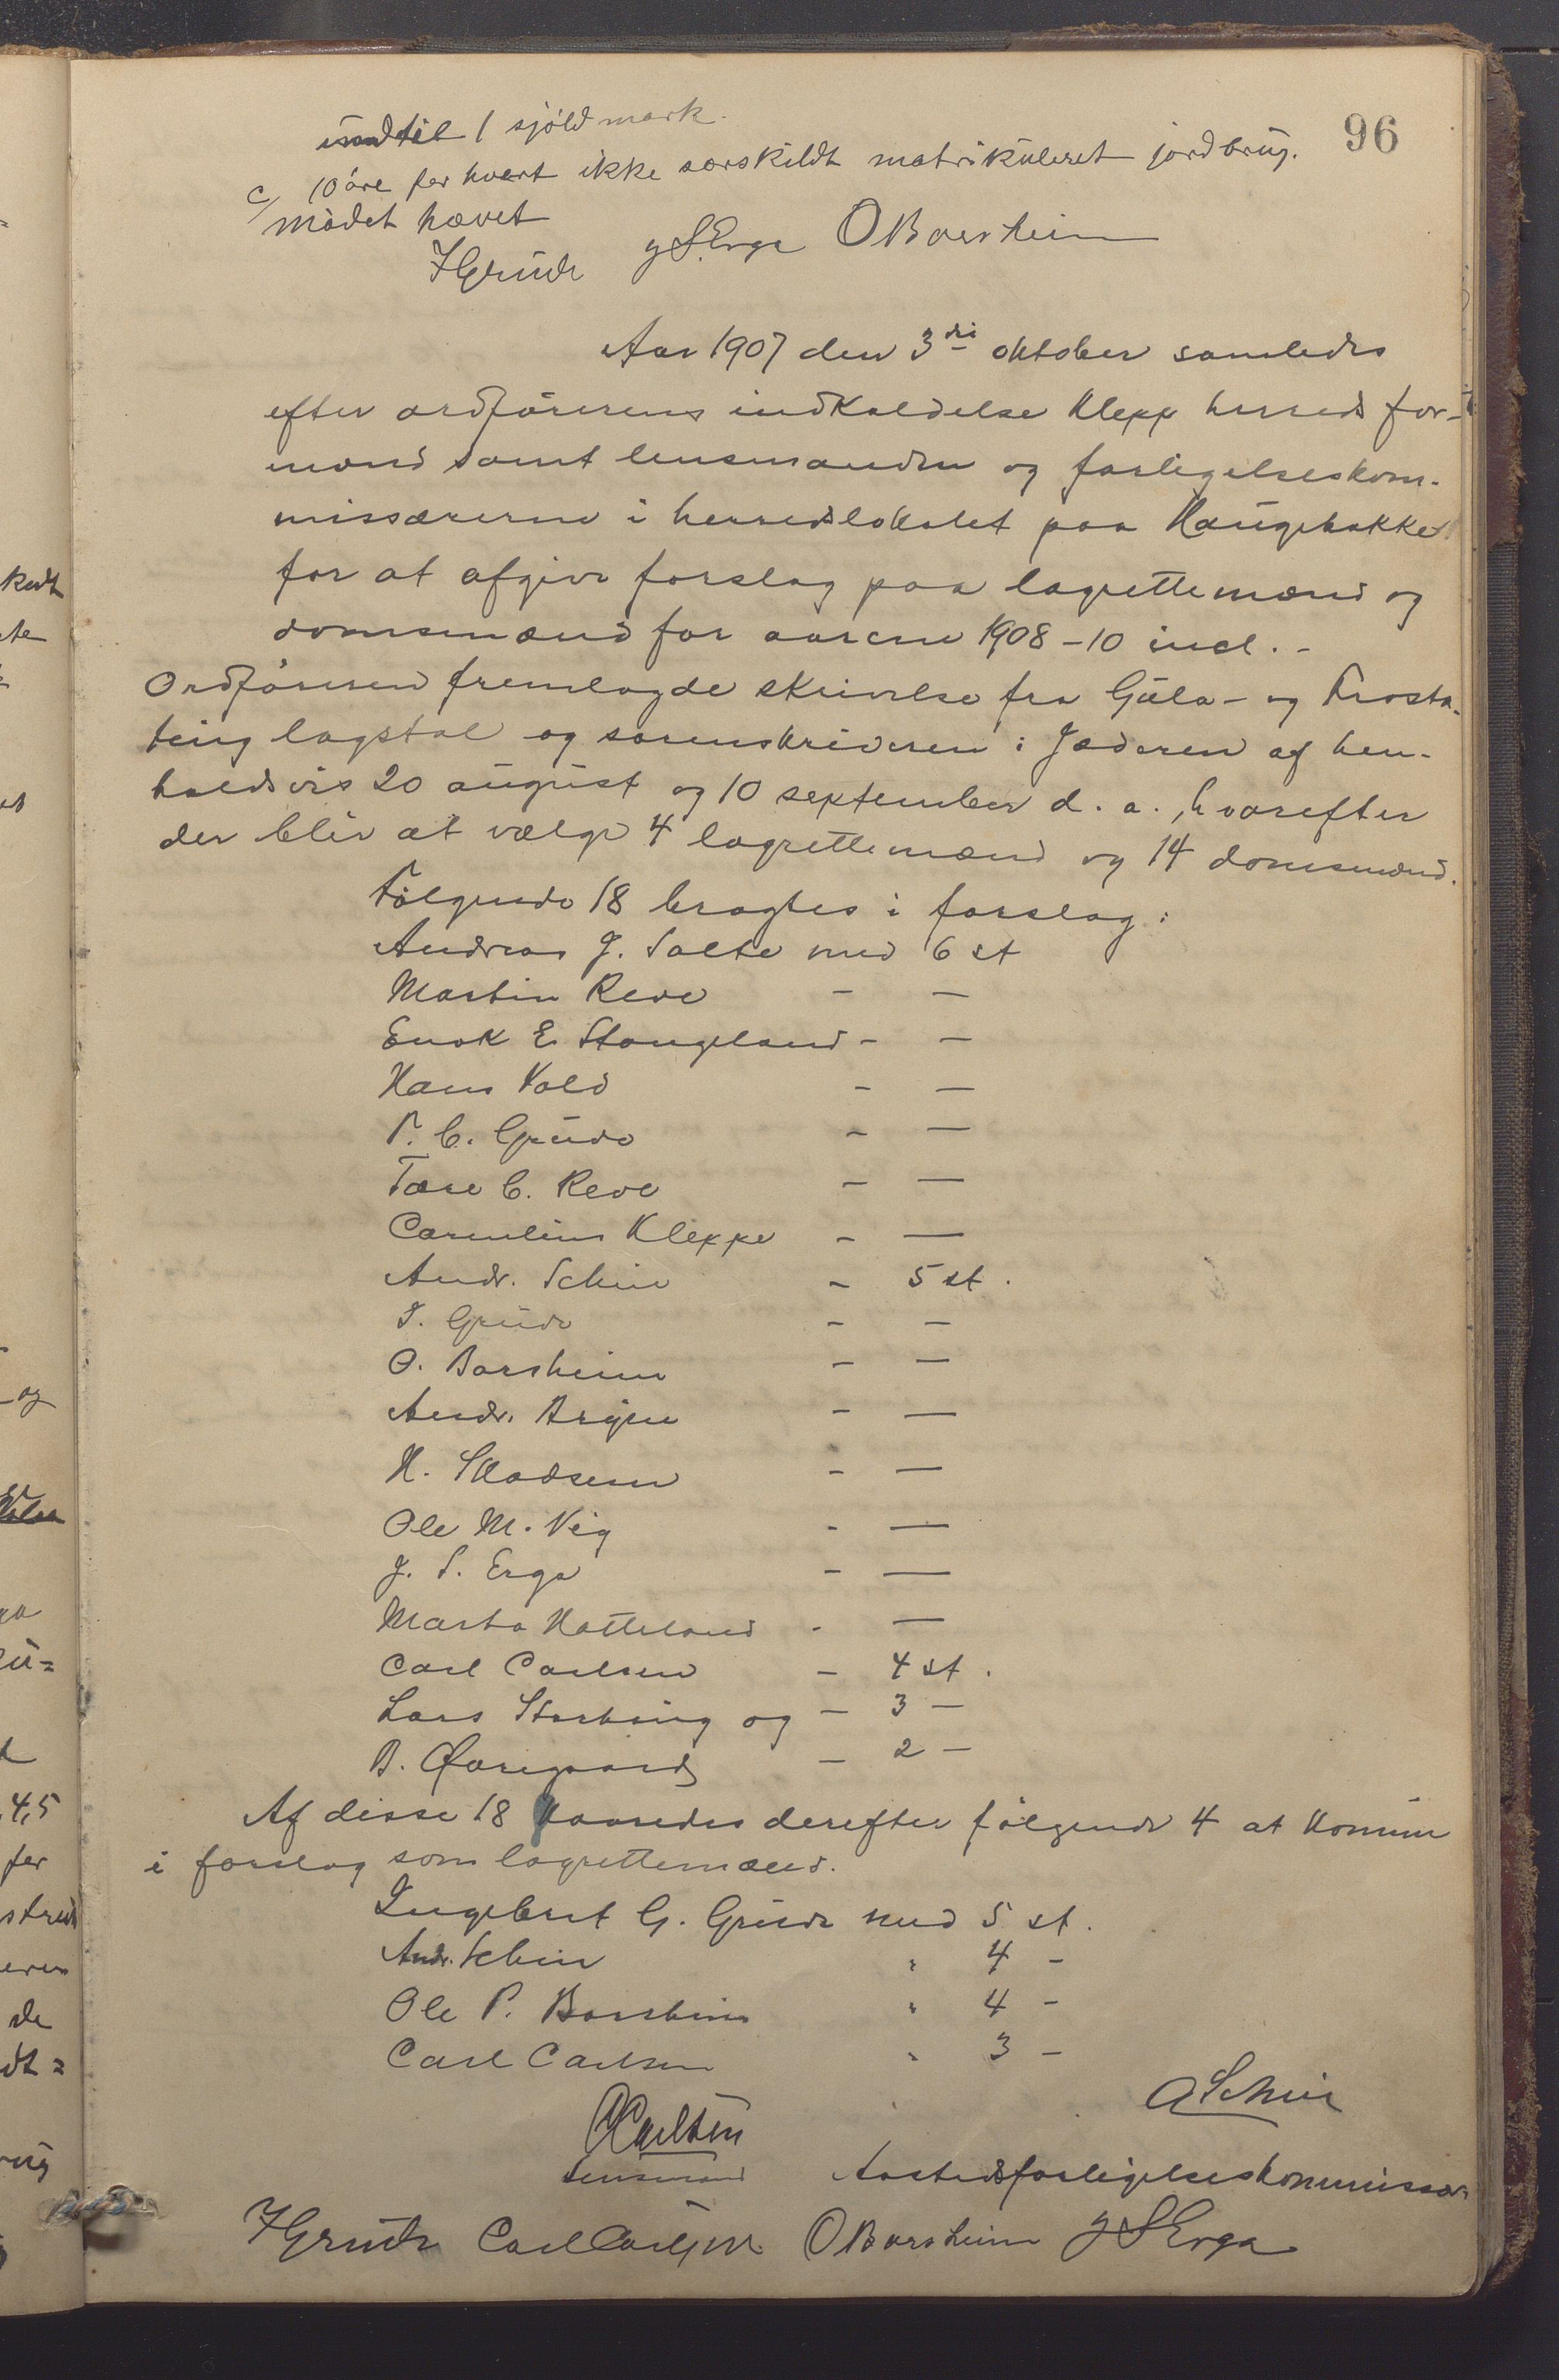 96
indtil 1 sjöldmark.
c/ 10 öre for hvert ikke særskildt matrikuleret jordbrug.
Mödet hævet
IGrude J S. Erga O Borsheim
Aar 1907 den 3die oktober samledes
efter ordförerens indkaldelse Klepp herreds for-
mænd samt lensmanden og forligelseskom-
missærerne i herredslokalet paa Haugebakke
for at afgive forslag paa lagrettemænd og
domsmænd for aarene 1908-10 incl. -
Ordföreren fremlagde skrivelse fra Gula- og Frosta-
ting lagstol og sorenskriveren i Jæderen af hen-
holdsvis 20 august og 10 september d. a., hvorefter
der bliv at vælge 4 lagrettemænd og 14 domsmænd.
Fölgende 18 bragtes i forslag:
Andreas J. Salte med 6 st
Martin Reve - —
Enok E. Stangeland - —
Hans Vold - —
T. C. Grude - —
Tore C. Reve - —
Cornelius Kleppe - —
Andr. Schie - 5 st.
I. Grude - —
O. Borsheim - —
Andr. Bryne - —
H. Skadsem - —
Ole M. Vig - —
J. S. Erga - —
Marta Hatteland - —
Carl Carlsen - 4 st.
Lars Storhaug og - 3 —
B. Øxregaard - 2 —
Af disse 18 kaaredes derefter fölgende 4 at komme
i forslag som lagrettemænd.
Ingebret G. Grude med 5 st.
Andr. Schie " 4 -
Ole P. Borsheim " 4 -
Carl Carlsen " 3 -
CCarlsen ASchie
Lensmand Aastedsforligelseskommissær
IGrude Carl Carlsen O Borsheim J S Erga